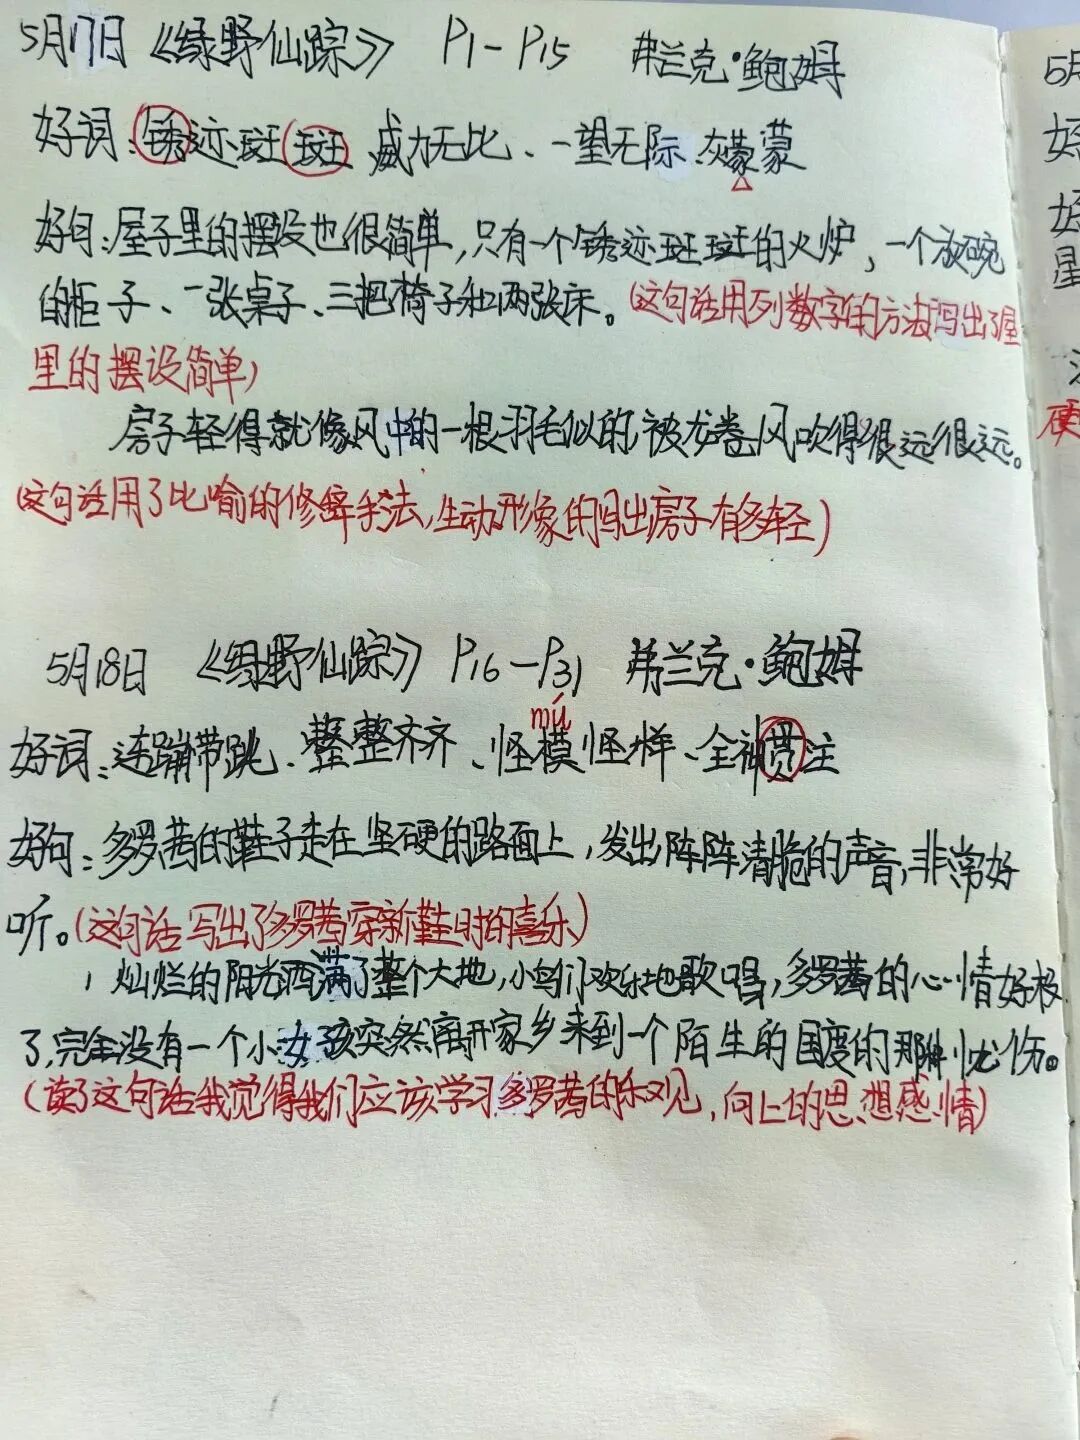 5月17日 《绿野仙踪》 P1-P15 弗兰克·鲍姆
好词：锈迹斑斑、威力无比、一望无际、灰蒙蒙
好句：屋子里的摆设也很简单，只有一个锈迹斑斑的火炉，一个放碗
的柜子、一张桌子、三把椅子和两张床。（这句话用列数字的方法写出了屋
里的摆设简单）
房子轻得就像风中的一根羽毛似的，被龙卷风吹得很远很远。
（这句话用了比喻的修辞手法，生动形象的写出房子有多轻）
5月18日 《绿野仙踪》 P16-P31 弗兰克·鲍姆
mú
好词：连蹦带跳、整整齐齐、怪模怪样、全神贯注
好句：多罗茜的鞋子走在坚硬的路面上，发出阵阵清脆的声音，非常好
听。（这句话写出了多罗茜穿新鞋时的喜乐）
灿烂的阳光洒满了整个大地，小鸟们欢乐地歌唱，多罗茜的心情好极
了，完全没有一个小女孩突然离开家乡来到一个陌生的国度的那种忧伤。
（读了这句话我觉得我们应该学习多罗茜的乐观，向上的思想感情）
5月
好
好
星
硬